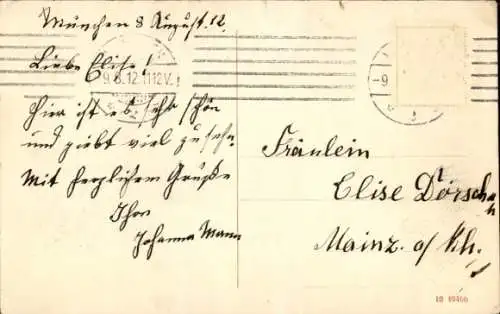 München 8 August. 12.
Liebe Elise!
9.8.12.11-12V.
Hier ist es sehr schön
und giebt viel zu sehn.
Mit herzlichem Gruße
Ihre
Johanna Mann
Fräulein
Elise Dörsch
Mainz. a/Rh.
-9